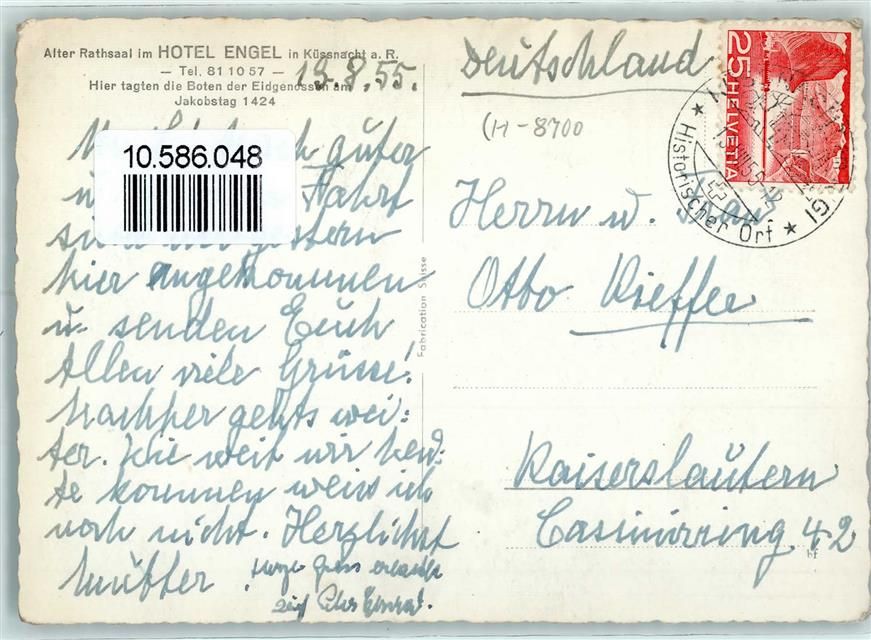 Alter Rathsaal im HOTEL ENGEL in Küssnacht a. R.
— Tel. 81 10 57 —
Hier tagten die Boten der Eidgenossen am
Jakobstag 1424
19.8.55.
10.586.048
guter
Fahrt
gestern
hier angekommen
u. senden Euch
Allen viele Grüsse!
Nachher gehts wei:
ter. Wie weit wir heu:
te kommen weiss ich
noch nicht. Herzlichst
Mutter
Fabrication Suisse
Deutschland
(H-8700
25 HELVETIA
Historischer Ort
Herrn u. Frau
Otto Kieffer
Kaiserslautern
Casimirring 42